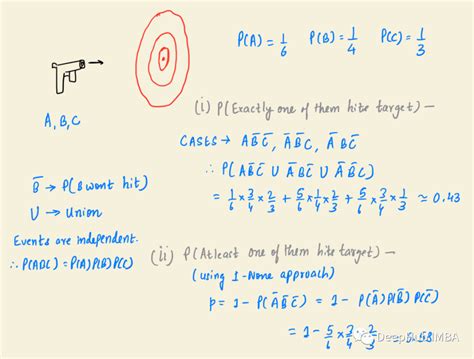 P(A) = 1/6 P(B) = 1/4 P(C) = 1/3
A, B, C
(i) P(Exactly one of them hits target) —
CASES → AB̄C̄, ĀB̄C, ĀBC̄
∴ P(AB̄C̄ ∪ ĀBC̄ ∪ ĀB̄C)
= 1/6 × 3/4 × 2/3 + 5/6 × 1/4 × 2/3 + 5/6 × 3/4 × 1/3 ≃ 0.43
B̄ → P(B wont hit)
∪ → Union
Events are independent.
∴ P(ABC) = P(A)P(B)P(C)
(ii) P(Atleast one of them hits target) —
(using 1-None approach)
P = 1 - P(ĀB̄C̄) = 1 - P(Ā)P(B̄)P(C̄)
= 1 - 5/6 × 3/4 × 2/3 = 0.58